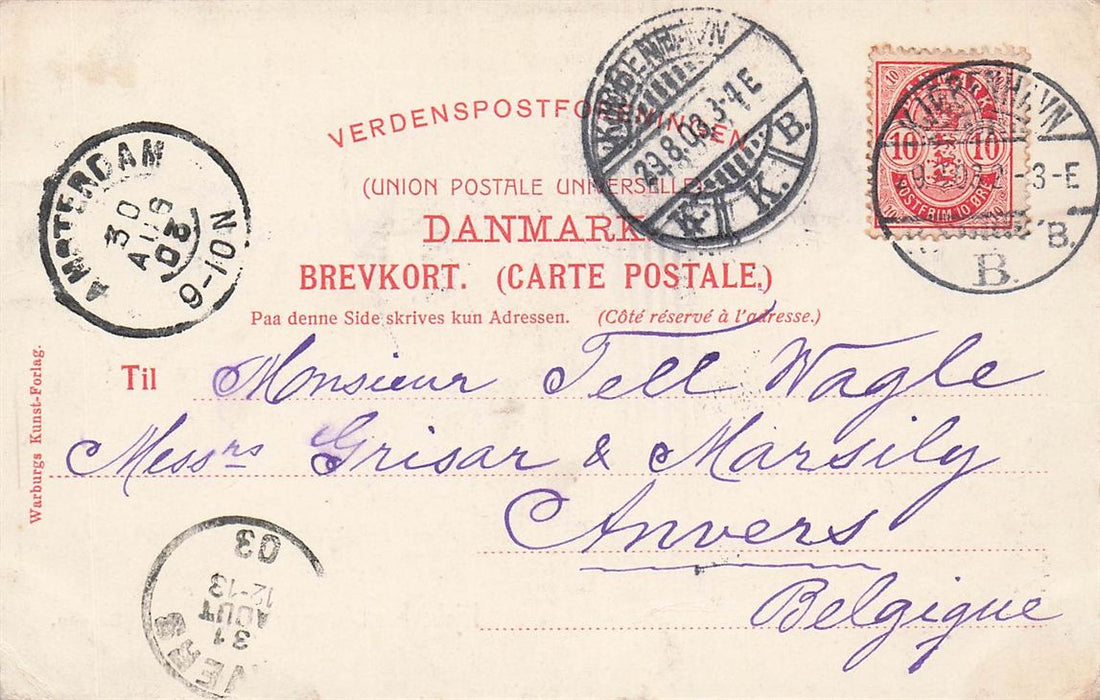 VERDENSPOSTFORENINGEN
(UNION POSTALE UNIVERSELLE)
DANMARK.
BREVKORT. (CARTE POSTALE.)
Paa denne Side skrives kun Adressen. (Côté réservé à l'adresse.)
Til Monsieur Tell Wagle
Messrs Grisar & Marsily
Anvers
Belgigue
Warburgs Kunst-Forlag.
KJØBENHAVN
29.8.03.3-4 E
K. B.
10 10
POSTFRIM. 10 ØRE
KJØBENHAVN
2-3 E
B.
B.
AMSTERDAM
30
AUG
03
9-10 N
03
12-13
AOUT
31